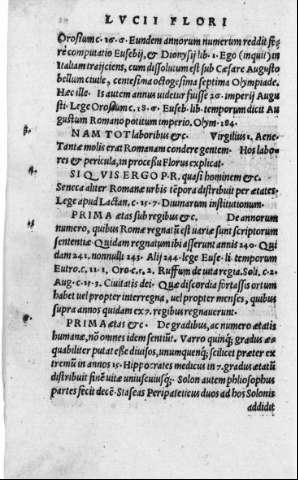 LVCII FLORI
Orosium c. 16. 6. Eundem annorum numerum reddit fe-
re computatio Eusebij, & Dionysij lib. 1. Ego (inquit) in
Italiam traijciens, cum dissolucum est sub Cæsare Augusto
bellum ciuile, centesima octogesima septima Olympiade.
Hæc ille. Is autem annus videtur fuisse 26. imperij Augu
sti. Lege Orosium c. 18. 6. Euseb. lib. temporum dicit Au
gustum Romano potitum imperio. Olym. 184.
NAM TOT laboribus &c. Virgilius 1. Aene.
Tantæ molis erat Romanam condere gentem. Hos labo
res & pericula, in processu Florus explicat.
SI QVIS ERGO P.R. quasi hominem &c.
Seneca aliter Romanæ urbis tēpora distribuit per ætates.
Lege apud Lactan. c. 15. 7. Diuinarum institutionum.
PRIMA ætas sub regibus &c. De annorum
numero, quibus Roma regnatũ est variæ sunt scriptorum
sententiæ. Quidam regnatum ibi asserunt annis 240. Qui
dam 241. nonnulli 243. Alij 244. lege Euse. li. temporum
Eutro. c. 11. 1. Oro. c. 5. 2. Ruffum de uita regia. Soli. c. 2.
Aug. c. 15. 3. Ciuitatis dei. Quæ discordia fortassis ortum
habet uel propter interregna, uel propter menses, quibus
supra annos quidam ex 7. regibus regnauerunt.
PRIMA ætas &c. De gradibus, ac numero ætatis
humanæ, nõ omnes idem sentiũt. Varro quinq; gradus æ-
quabiliter putat esse diuisos, unumquenq; scilicet præter ex
tremũ in annos 15. Hippocrates medicus in 7. gradus ætatũ
distribuit finē vitæ uniuscuiusq;. Solon autem philosophus
partes fecit decē. Staseas Peripateticus duos ad hos Solonis
addidit